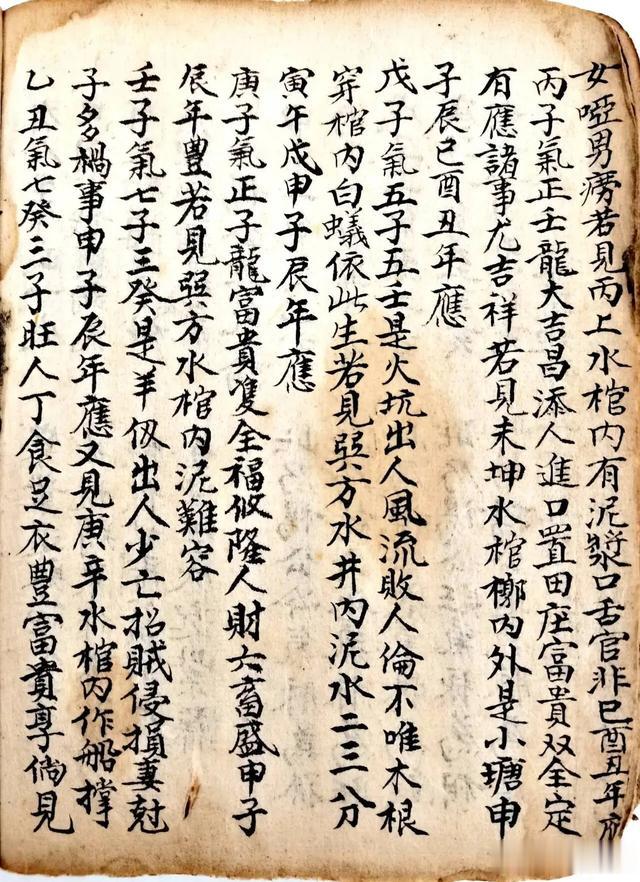 女啞男癆若見丙上水棺內有泥漿口舌官非巳酉丑年應
丙子氣正壬龍大吉昌添人進口置田庄富貴双全定
有應諸事尤吉祥若見未坤水棺槨內外是小塘申
子辰巳酉丑年應
戊子氣五子五壬是火坑出人風流敗人倫不唯木根
穿棺內白蟻依此生若見巽方水井內泥水二三分
寅午戍申子辰年應
庚子氣正子龍富貴雙全福攸隆人財六畜盛申子
辰年豊若見巽方水棺內泥難容
壬子氣七子三癸是羊仭出人少亡招賊侵損妻尅
子多禍事申子辰年應又見庚辛水棺內作船撑
乙丑氣七癸三子旺人丁食足衣豊富貴享倘見